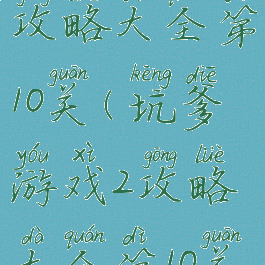 攻略大全第
guān kēng diē
10关(坑爹
yóu xì gōng lüè
游戏2攻略
dà quán dì guān